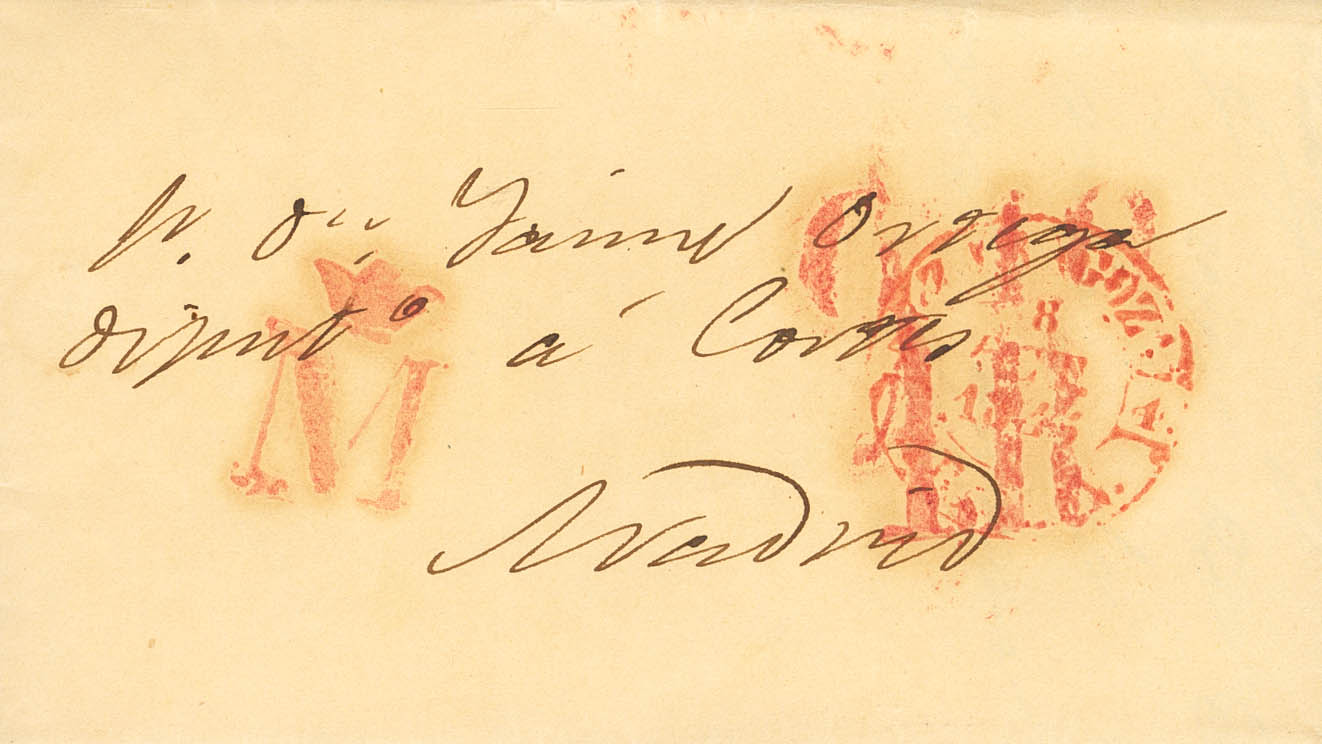 Sr. Dn. Jaime Ortega
diputo. á Cortes
Madrid
M
8